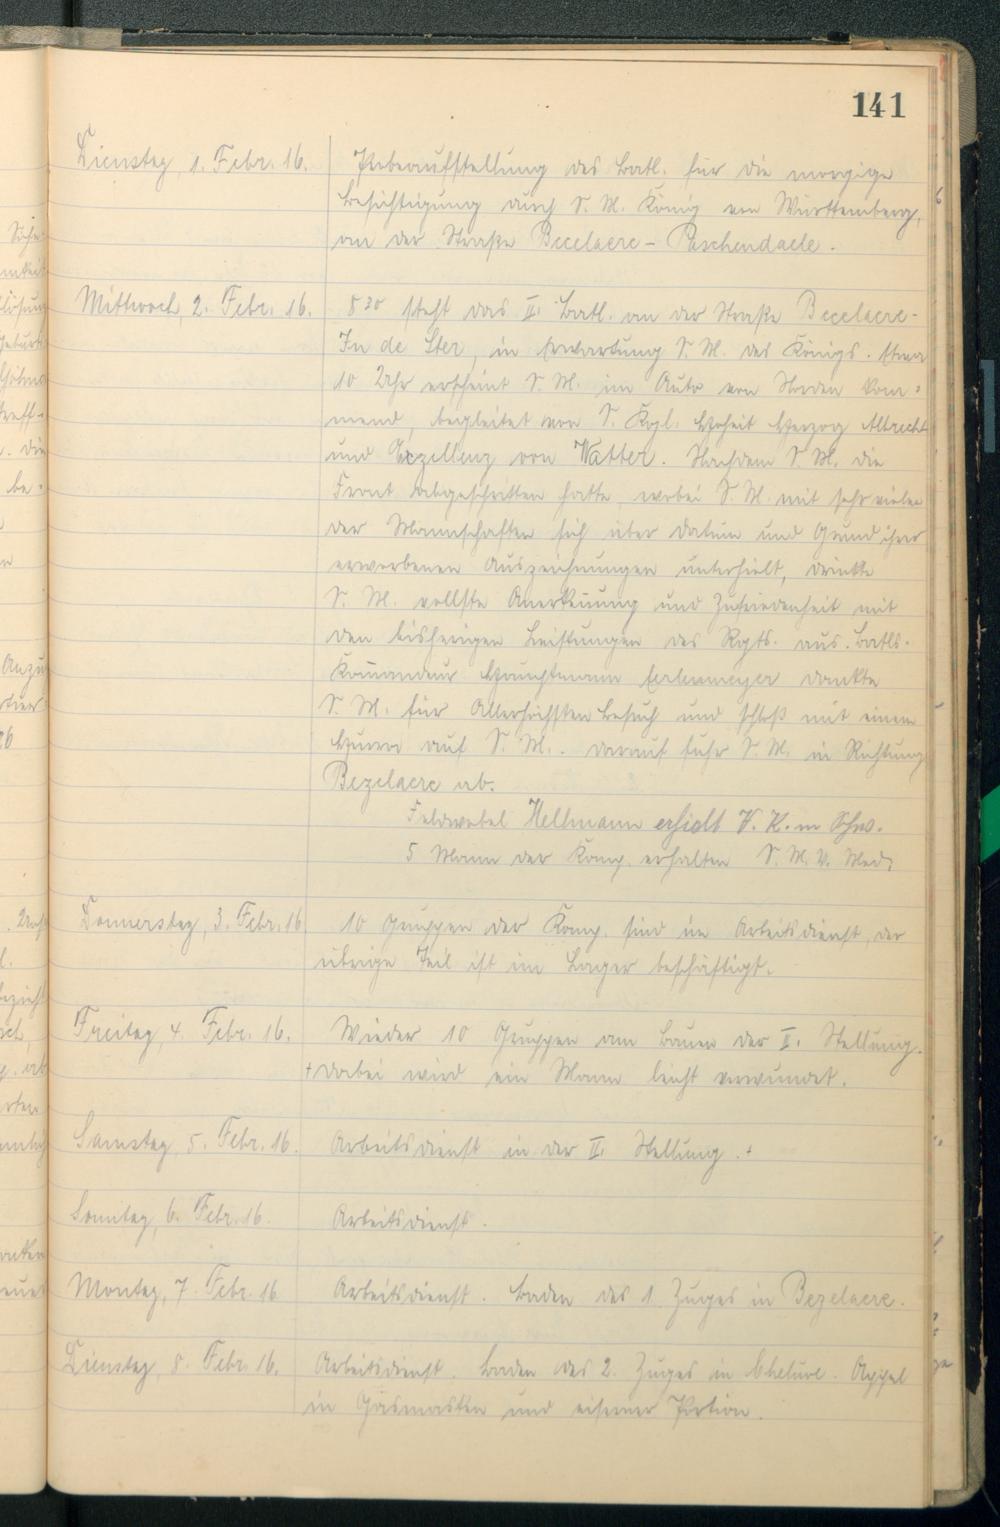 141
Dienstag, 1. Febr. 16. Probeaufstellung des Batl. für die morgige
Besichtigung durch S. M. König von Württemberg,
an der Straße Becelaere - Paschendaele.
Mittwoch, 2. Febr. 16. 8 30 steht das II. Batl. an der Straße Becelaere -
In de Ster, in Erwartung S. M. des Königs. Etwa
10 Uhr erscheint S. M. im Auto von Norden kom-
mend, begleitet von S. Kgl. Hoheit Herzog Albrecht
und Exzellenz von Watter. Nachdem S. M. die
Front abgeschritten hatte, wobei S. M. mit sehr vielen
der Mannschaften sich über Datum und Grund ihrer
erworbenen Auszeichnungen unterhielt, drückte
S. M. vollste Anerkennung und Zufriedenheit mit
den bisherigen Leistungen des Rgts. aus. Batls.
Kommandeur Hauptmann Erlenmeyer dankte
S. M. für Allerhöchsten Besuch und schloß mit einem
Hurra auf S. M. Darauf fuhr S. M. in Richtung
Bezelaere ab.
Feldwebel Hellmann erhielt V. K. m Schw.
5 Mann der Komp. erhalten S. M. V. Med.
Donnerstag, 3. Febr. 16 10 Gruppen der Komp. sind im Arbeitsdienst, der
übrige Teil ist im Lager beschäftigt.
Freitag, 4. Febr. 16. Wieder 10 Gruppen am Bauen der II. Stellung.
+ Dabei wird ein Mann leicht verwundet.
Samstag, 5. Febr. 16. Arbeitsdienst in der II. Stellung. +
Sonntag, 6. Febr. 16. Arbeitsdienst.
Montag, 7. Febr. 16 Arbeitsdienst. Baden des 1. Zuges in Bezelaere.
Dienstag, 8. Febr. 16. Arbeitsdienst. Baden des 2. Zuges in Gheluve. Appel
in Gasmasken und eiserner Portion.